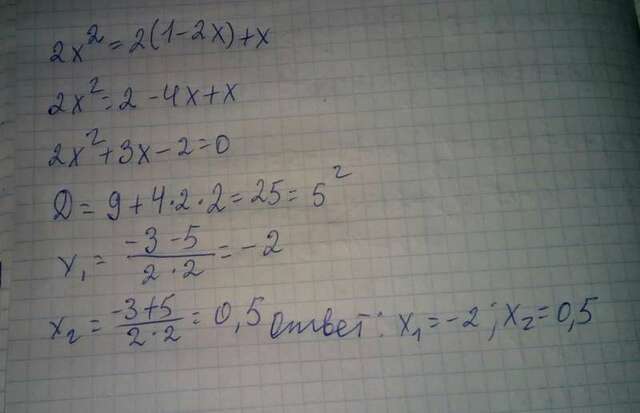 2x² = 2(1-2x)+x
2x² = 2-4x+x
2x²+3x-2=0
D = 9+4·2·2=25=5²
x₁ = (-3-5)/(2·2) = -2
x₂ = (-3+5)/(2·2) = 0,5 Ответ: x₁=-2; x₂=0,5